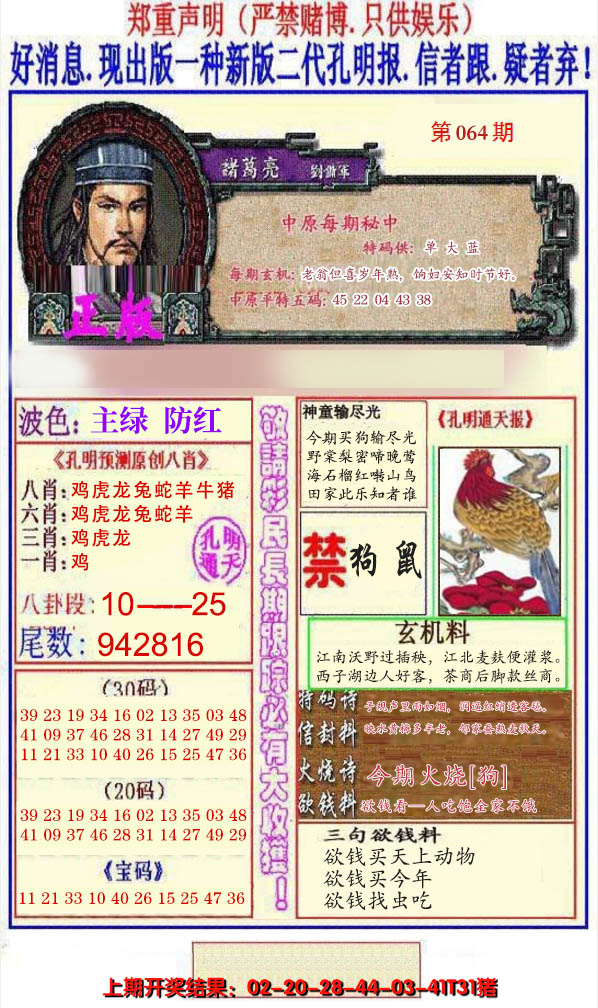 郑重声明（严禁赌博.只供娱乐）
好消息.现出版一种新版二代孔明报.信者跟.疑者弃！
第064期
諸葛亮
中原每期秘中
特码供：单 大 蓝
每期玄机：老翁但喜岁年熟，饷妇安知时节好。
中原平特五码：45 22 04 43 38
正版
波色：主绿 防红
《孔明预测原创八肖》
八肖：鸡虎龙兔蛇羊牛猪
六肖：鸡虎龙兔蛇羊
三肖：鸡虎龙
一肖：鸡
孔明
通天
八卦段：10——25
尾数：942816
（30码）
39 23 19 34 16 02 13 35 03 48
41 09 37 46 28 31 14 27 49 29
11 21 33 10 40 26 15 25 47 36
（20码）
39 23 19 34 16 02 13 35 03 48
41 09 37 46 28 31 14 27 49 29
《宝码》
11 21 33 10 40 26 15 25 47 36
敬請彩民長期跟踪必有大收獲！
神童输尽光
今期买狗输尽光
野棠梨密啼晚莺
海石榴红啭山鸟
田家此乐知者谁
《孔明通天报》
禁 狗 鼠
玄机料
江南沃野过插秧，江北麦麸便灌浆。
西子湖边人好客，茶商后脚款丝商。
特码诗
信封料
子规声里雨如烟，润逼红绡透客毡。
映水黄梅多半老，邻家蚕熟麦秋天。
火烧诗
今期火烧[狗]
欲钱料
欲钱看—人吃饱全家不饿
三句欲钱料
欲钱买天上动物
欲钱买今年
欲钱找虫吃
上期开奖结果：02-20-28-44-03-41T31猪